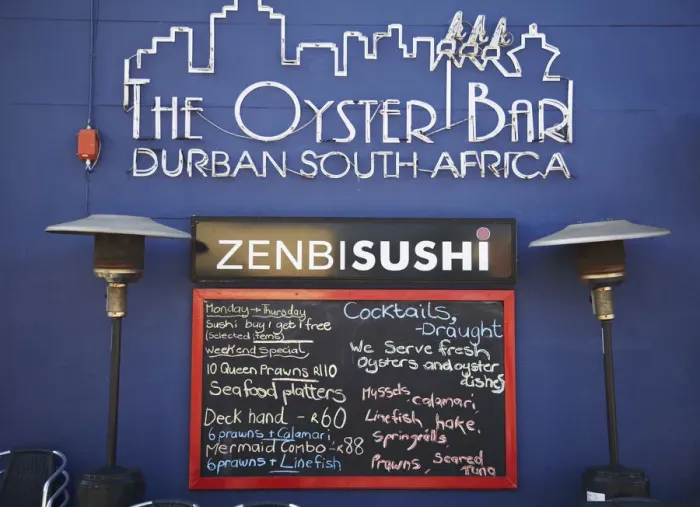 THE OYSTER BAR
DURBAN SOUTH AFRICA
ZENBISUSHI
Monday → Thursday
Sushi buy 1 get 1 free
(selected items)
Weekend Special
10 Queen Prawns R110
Seafood platters
Deck hand - R60
6 prawns + Calamari
Mermaid Combo - R88
6 prawns + Linefish
Cocktails,
- Draught
We Serve fresh
Oysters and oyster
dishes
Mussels, calamari,
Linefish, hake,
Springrolls,
Prawns, Seared
Tuna